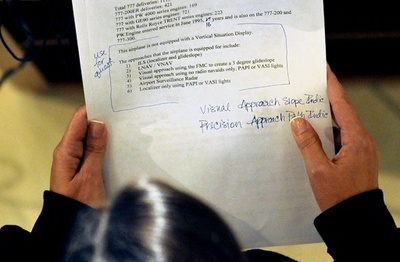 Total 777 deliver
777-200ER deliveries: 421
777 with PW 4000 series engines: 169
777 with GE90 series engines: 721
777 with Rolls Royce TRENT series engines: 223
PW Engine entered service in June 1995, years is also on the 777-200 and
777-300.
use for
This airplane is not equipped with a Vertical Situation Display.
The approaches that the airplane is equipped for include:
1) ILS (localizer and glideslope)
2) LNAV / VNAV
3) Visual approach using the FMC to create a 3 degree glideslope
4) Visual approach using no radio navaids only, PAPI or VASI lights
5) Airport Surveillance Radar
6) Localizer only using PAPI or VASI lights
Visual Approach Slope Indic
Precision Approach Path Indic